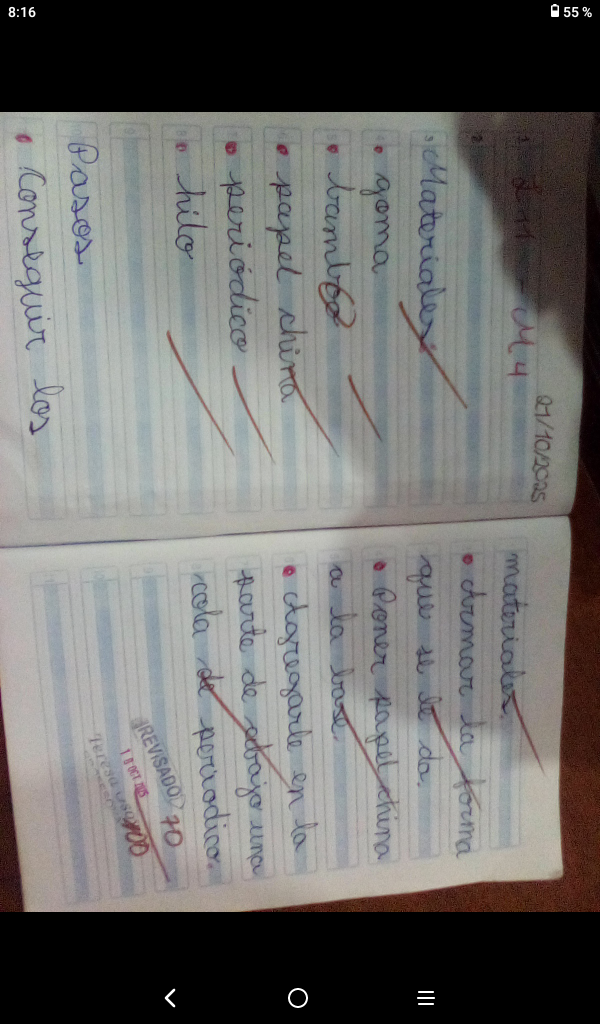 8:16
55 %
21/10/2025
M4
Materiales:
goma
bamboo
papel china
periódico
hilo
Pasos
Conseguir los
materiales.
Armar la forma
que se le da.
Poner papel china
a la base.
Agregarle en la
parte de abajo una
cola de periodico.
REVISADO
70
100